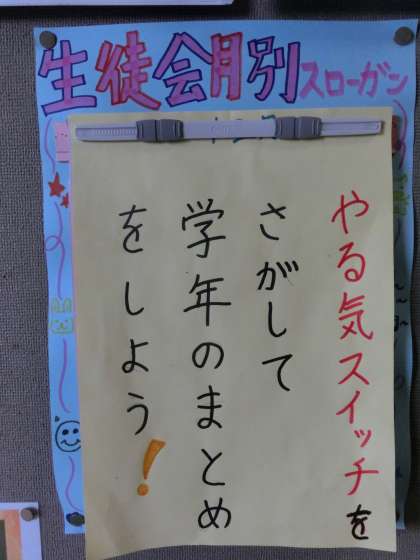 生徒会月別スローガン
やる気スイッチを
さがして
学年のまとめ
をしよう!